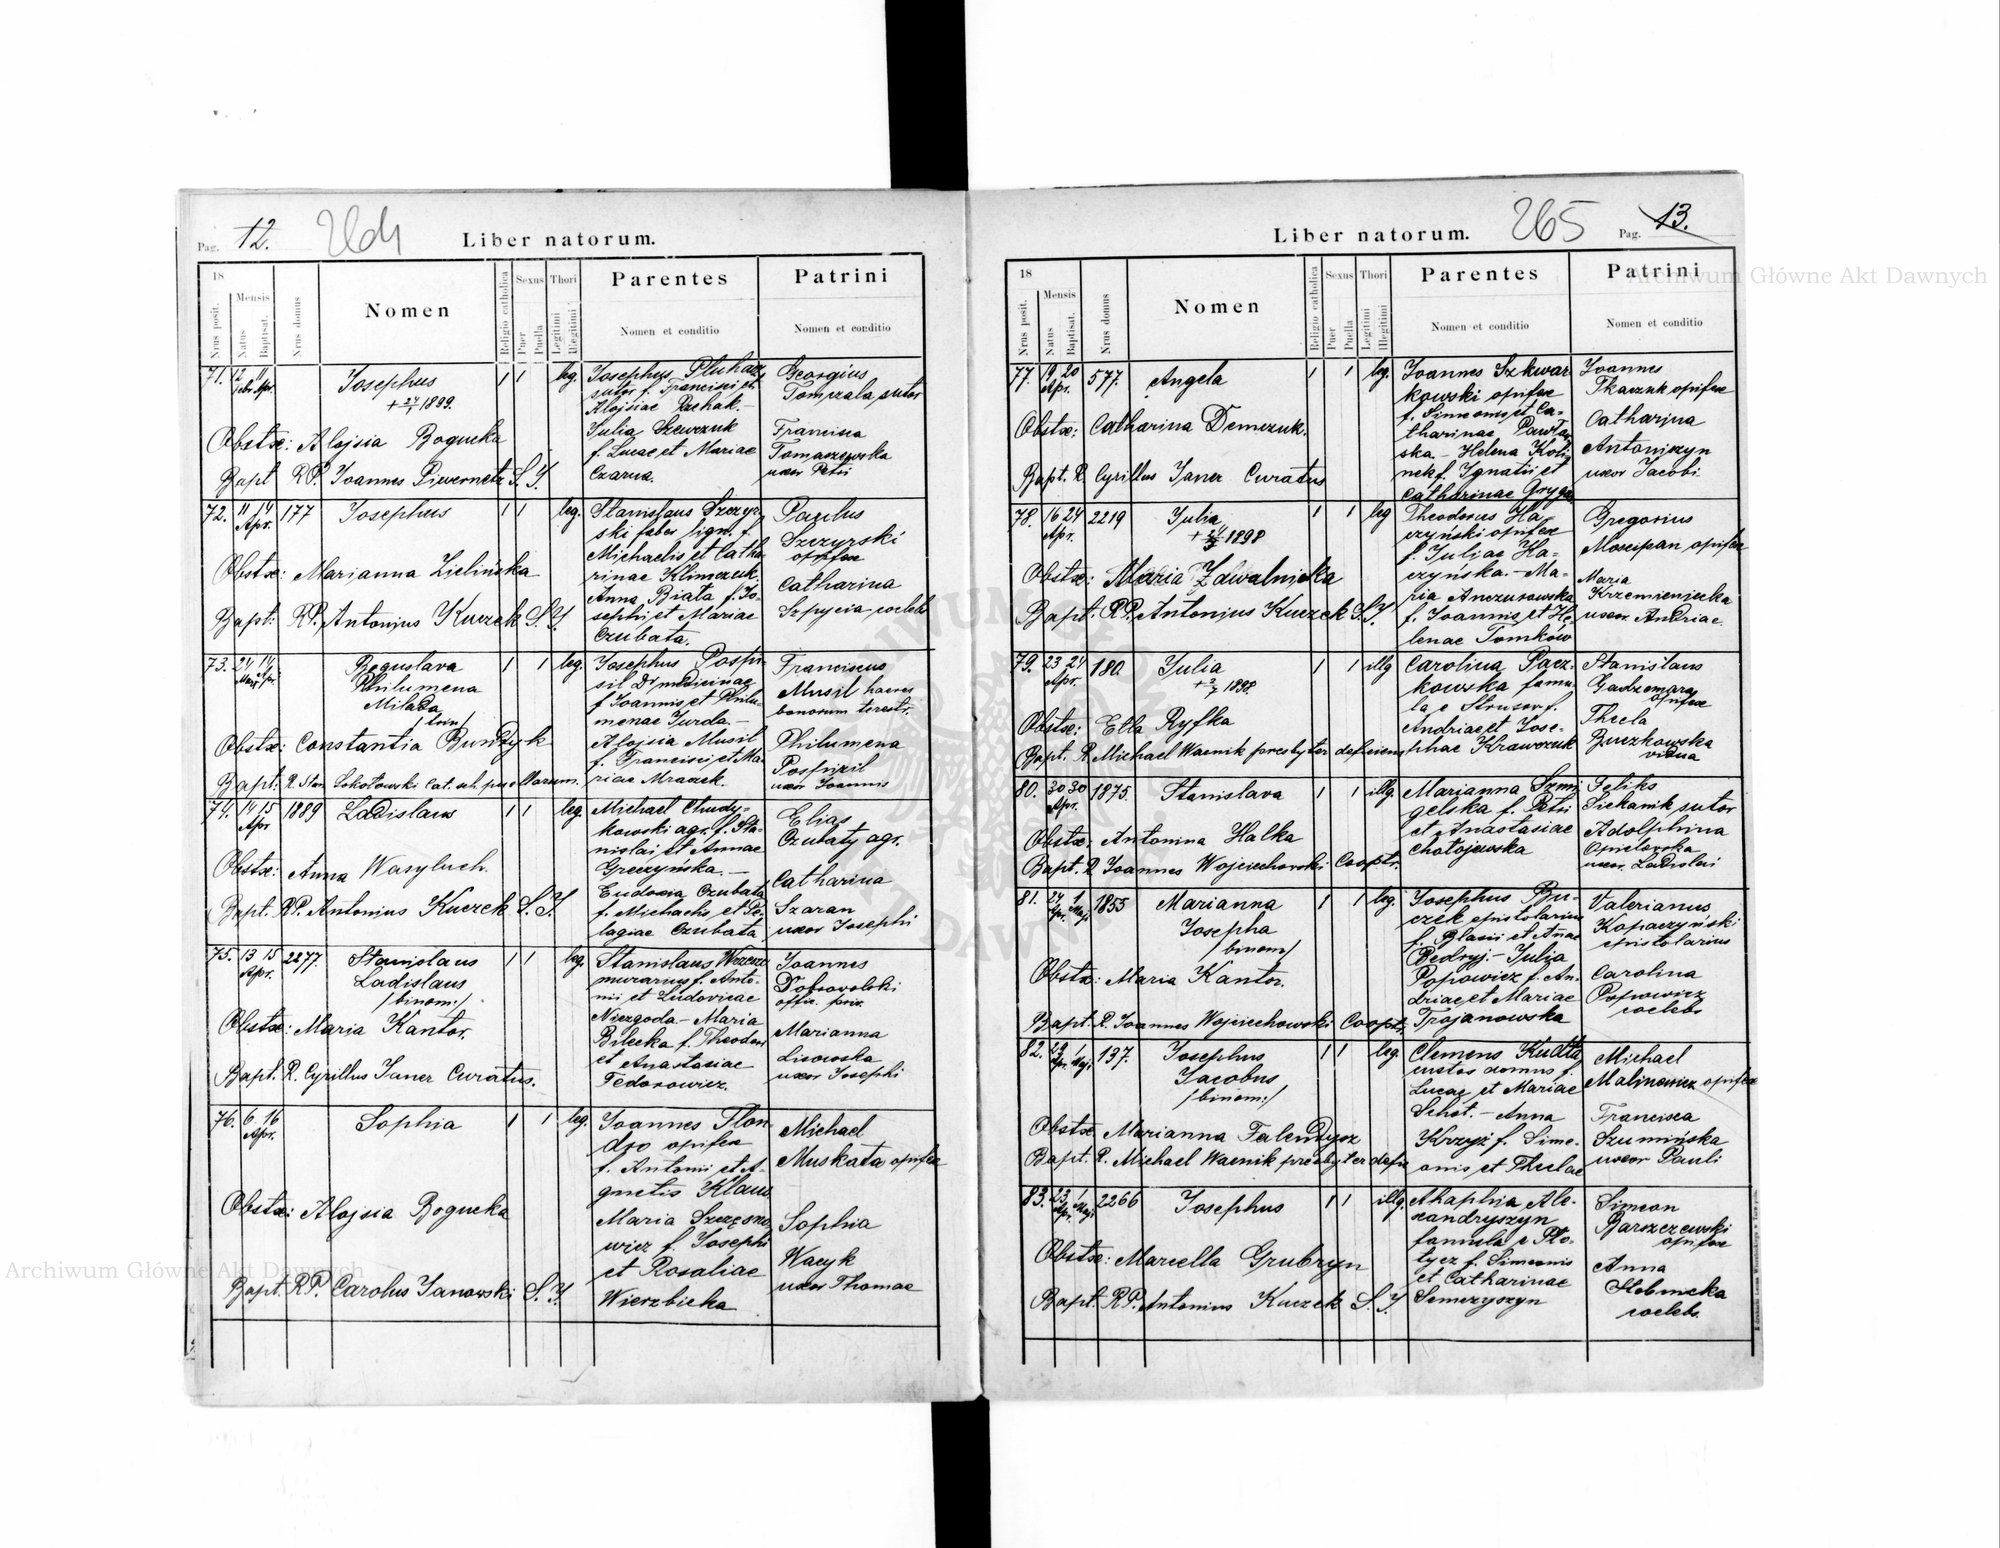 Pag. 12. 264 Liber natorum.
18 Mensis Sexus Thori Parentes Patrini
Nrus posit. Natus Baptisat. Nrus domus Nomen Religio catholica Puer Puella Legitimi Illegitimi Nomen et conditio Nomen et conditio
71. 12 11 Josephus 1 1 leg. Josephus Georgius
Febr. Apr. sutor f. Francisci et Tomczala sutor
+ 24/1 1899. Alojsiae Rzehak.-
Julia Szewczuk Francisca
Obstx: Alojsia Bogucka f. Lucae et Mariae Tomaszewska
Bapt RP. Joannes S. J. Czarna. uxor Petri
72. 11 14 177 Josephus 1 1 leg. Stanislaus Szczyr- Paulus
Apr. ski faber lign. f. Szczyrski
Michaelis et Catha- opifex
Obstx: Marianna Zielińska rinae Klimczuk. Catharina
Anna Biała f. Jo-
Bapt: RP. Antonius Kuczek S. J. sephi et Mariae Szpycia coelebs
Czubata.
73. 24 14 Boguslava 1 1 leg. Josephus Pospi- Franciscus
Mart. Apr. Philumena sil Dr medicinae Musil haeres
Milada f. Joannis et Philu- bonorum terestr.
/trin/ menae Jurda.-
Obstx: Constantia Bundyk Alojsia Musil Philumena
f. Francisci et Ma- Pospizil
Bapt: R. Stan. Sokołowski Cat. sch. puellarum. riae Mrazek. uxor Joannis
74. 14 15 1889 Ladislaus 1 1 leg. Michael Chudy- Elias
Apr kowski agr. f. Sta- Czubaty agr.
nislai et Annae
Obstx: Anna Wasyluch. Greczyńska.- Catharina
Eudoxia Czubata
Bapt. RP. Antonius Kuczek S. J. f. Michaelis et Pe- Szaran
lagiae Czubata uxor Josephi
75. 13 15 2277. Stanislaus 1 1 leg. Stanislaus Joannes
Apr. Ladislaus murarius f. Anto- Dobrovolski
/binom:/ nii et Ludovicae offic. priv.
Obstx: Maria Kantor. Niezgoda- Maria Marianna
Bilecka f. Theodori Lisowska
Bapt. R. Cyrillus Janer Curatus. et Anastasiae uxor Josephi
Fedorowicz.
76. 6 16 Sophia 1 1 leg. Joannes Flon- Michael
Apr. dzo opifex Muskata opifex
f. Antonii et A-
gnetis Klaus
Obstx: Alojsia Bogucka Maria Szczęsno- Sophia
wicz f. Josephi Wacyk
Bapt. RP. Carolus Janowski S. J. et Rosaliae uxor Thomae
Wierzbicka
Liber natorum. 265 Pag. 13.
18 Mensis Sexus Thori Parentes Patrini
Nrus posit. Natus Baptisat. Nrus domus Nomen Religio catholica Puer Puella Legitimi Illegitimi Nomen et conditio Nomen et conditio
77. 19 20 577. Angela 1 1 leg. Joannes Szkwar- Joannes
Apr. kowski opifex Tkaczuk opifex
f. Simeonis et Ca- Catharina
Obstx: Catharina Demczuk. tharinae
ska- Helena Antoniszyn
Bapt. R. Cyrillus Janer Curatus f. Ignatii et uxor Jacobi
Catharinae
78. 16 24 2219 Julia 1 1 leg Theodorus Ha- Gregorius
Apr. 1898 czyński opifex Moscipan opifex
f. Juliae Ha-
Obstx: Maria Zdwalnicka czyńska.- Ma- Maria
ria Krzemieniecka
Bapt. RP. Antonius Kuczek S. J. f. Joannis et He- uxor Andriae
lenae Tomków
79. 23 24 180. Julia 1 1 illg Carolina Pacz- Stanislaus
Apr. 1898. kowska famu-
la e Strusov f. opifex
Obstx: Etla Ryfka Andriae et Jose- Thecla
Bapt. R. Michael Wacnik presbyter deficiens phae Krawczuk Buczkowska
vidua
80. 30 30 1875. Stanislava 1 1 illg. Marianna Szmi- Feliks
Apr. gelska f. Petri Siekanik sutor
Obstx: Antonina Halka et Anastasiae Adolphina
Chotojewska Opielovska
Bapt. R Joannes Wojciechovski Cooptr. uxor Ladislai
81. 24 1 1855 Marianna 1 1 leg. Josephus Bu- Valerianus
Apr. Maji Josepha czek epistolarius Kopaczyński
/binom/ f. Blasii et Annae epistolarius
Obstx: Maria Kantor. Bedryj.- Julia Carolina
Popowicz f. An- Popowicz
driae et Mariae coelebs
Bapt. R. Joannes Wojciechowski Cooptr. Trojanowska
82. 29 1 137. Josephus 1 1 leg. Clemens Michael
Apr Maji Jacobus custos domus f. Malinowicz opifex
/binom:/ Lucae et Mariae
Obstx Marianna Falendysz Schot.- Anna Francisca
Krzyż f. Sime- Szumińska
Bapt. R. Michael Wacnik presbyter defic onis et Theclae uxor Pauli
83. 23 1 2266 Josephus 1 1 illg. Ahaphia Ale- Simeon
Apr. Maji xandryszyn Barszczewski
famula e Pło- opifex
Obstx: Marcella Grubryn tycz f. Simeonis Anna
et Catharinae
Bapt. RP. Antonius Kuczek S. J Semczyszyn coelebs.
Archiwum Główne Akt Dawnych
Archiwum Główne Akt Dawnych